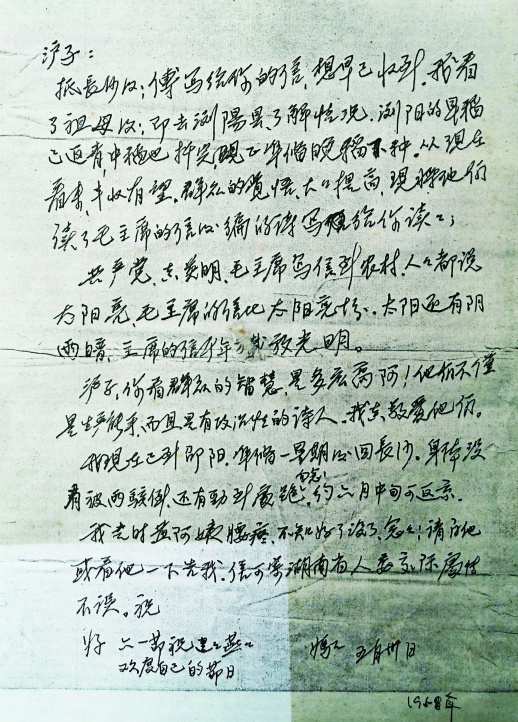 沪子：
抵長沙后，傅写给你的信，想早已收到，我看
了祖母后，即去浏陽县了解情况。浏阳的早稻
已返青，中稻也插完，现正準俻晚稻下种。从现在
看来，丰收有望。群众的觉悟，大大提高，现将他们
读了毛主席的信后编的诗写给你读读：
共产党，真英明，毛主席写信到农村，人人都说
太阳亮，毛主席的信比太阳亮十分。太阳还有阴
雨暗，主席的信千年万载放光明。
沪子，你看群众的智慧，是多么高阿！他们不僅
是生产能手，而且是有政治性的诗人。我真敬爱他们。
我现在已到邵阳，準俻一星期后回長沙。身体没
有被两
还有
勿念！
约六月中旬可返京。
我去时
阿姨腰疼，不知好了没有，念念！请
他
或看他一下告我。信可寄湖南省人委
不误。祝
好 六一节祝
欢度自己的节日
妈妈 五月卅日
年